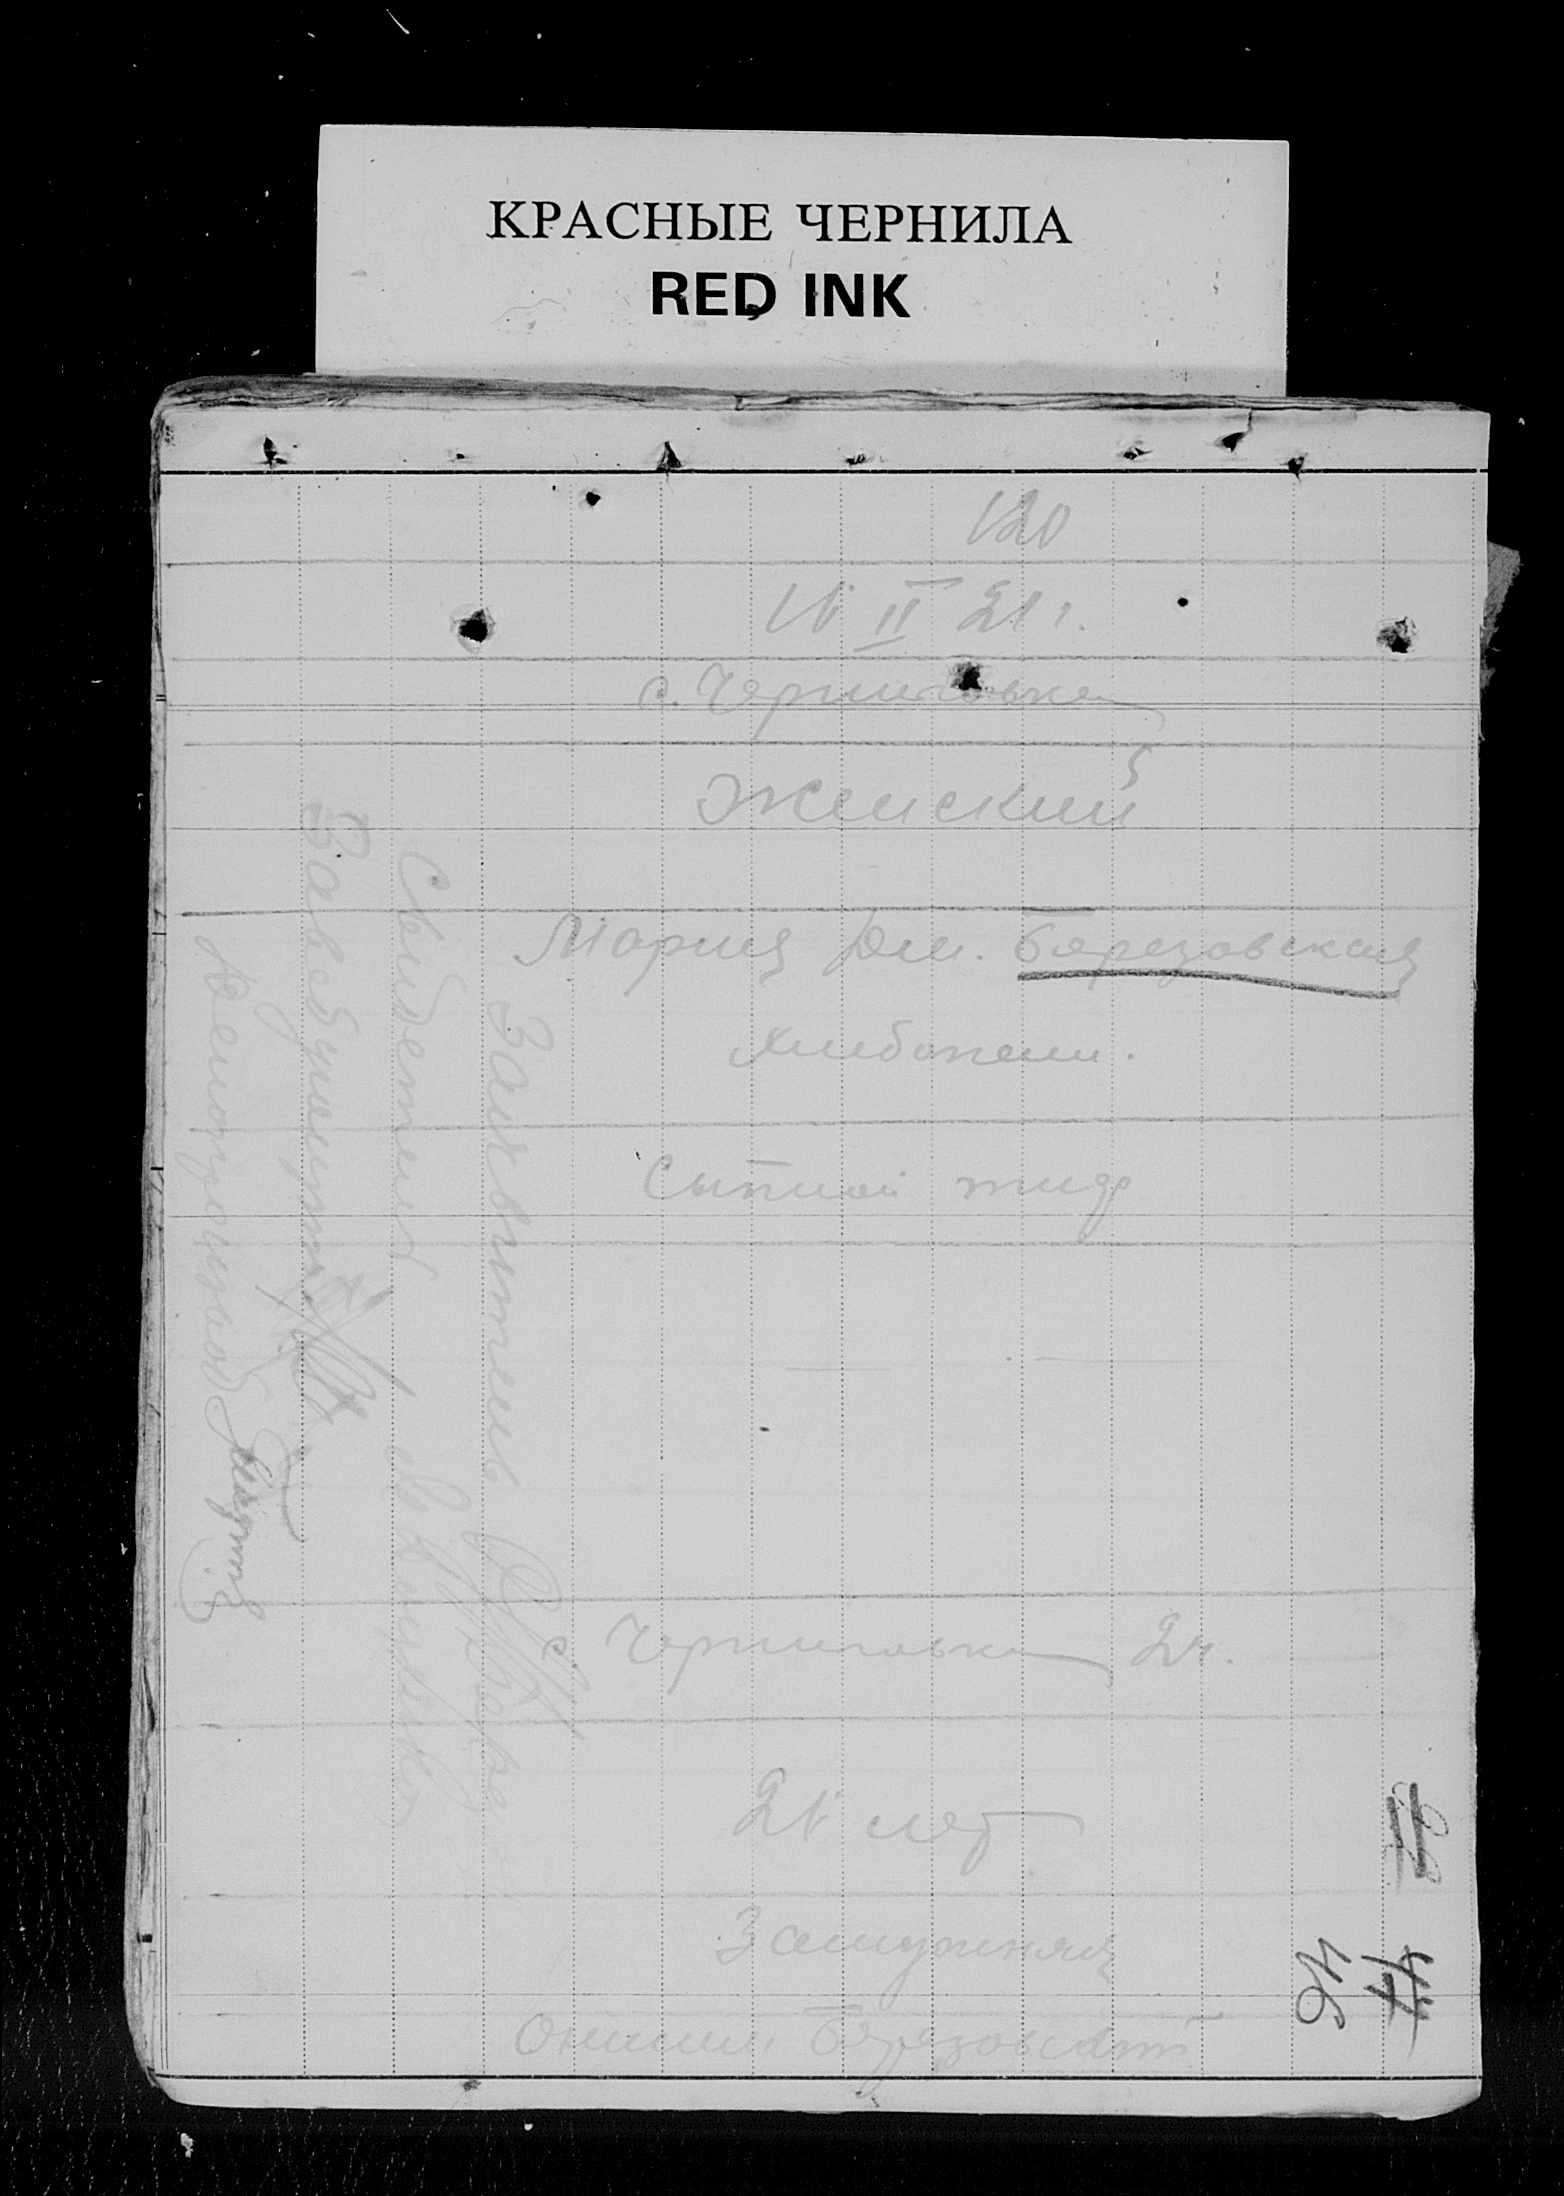 КРАСНЫЕ ЧЕРНИЛА
RED INK
120
II 21 г.
с. Черниговка
Женский
Мария Дм. Березовская
Хлебопаш.
Сыпной тиф
с. Черниговка 2 ч.
21 лет
Замужняя
Березовский
Заявитель
Свидетель
Заведующий
Делопроизвод
44
46